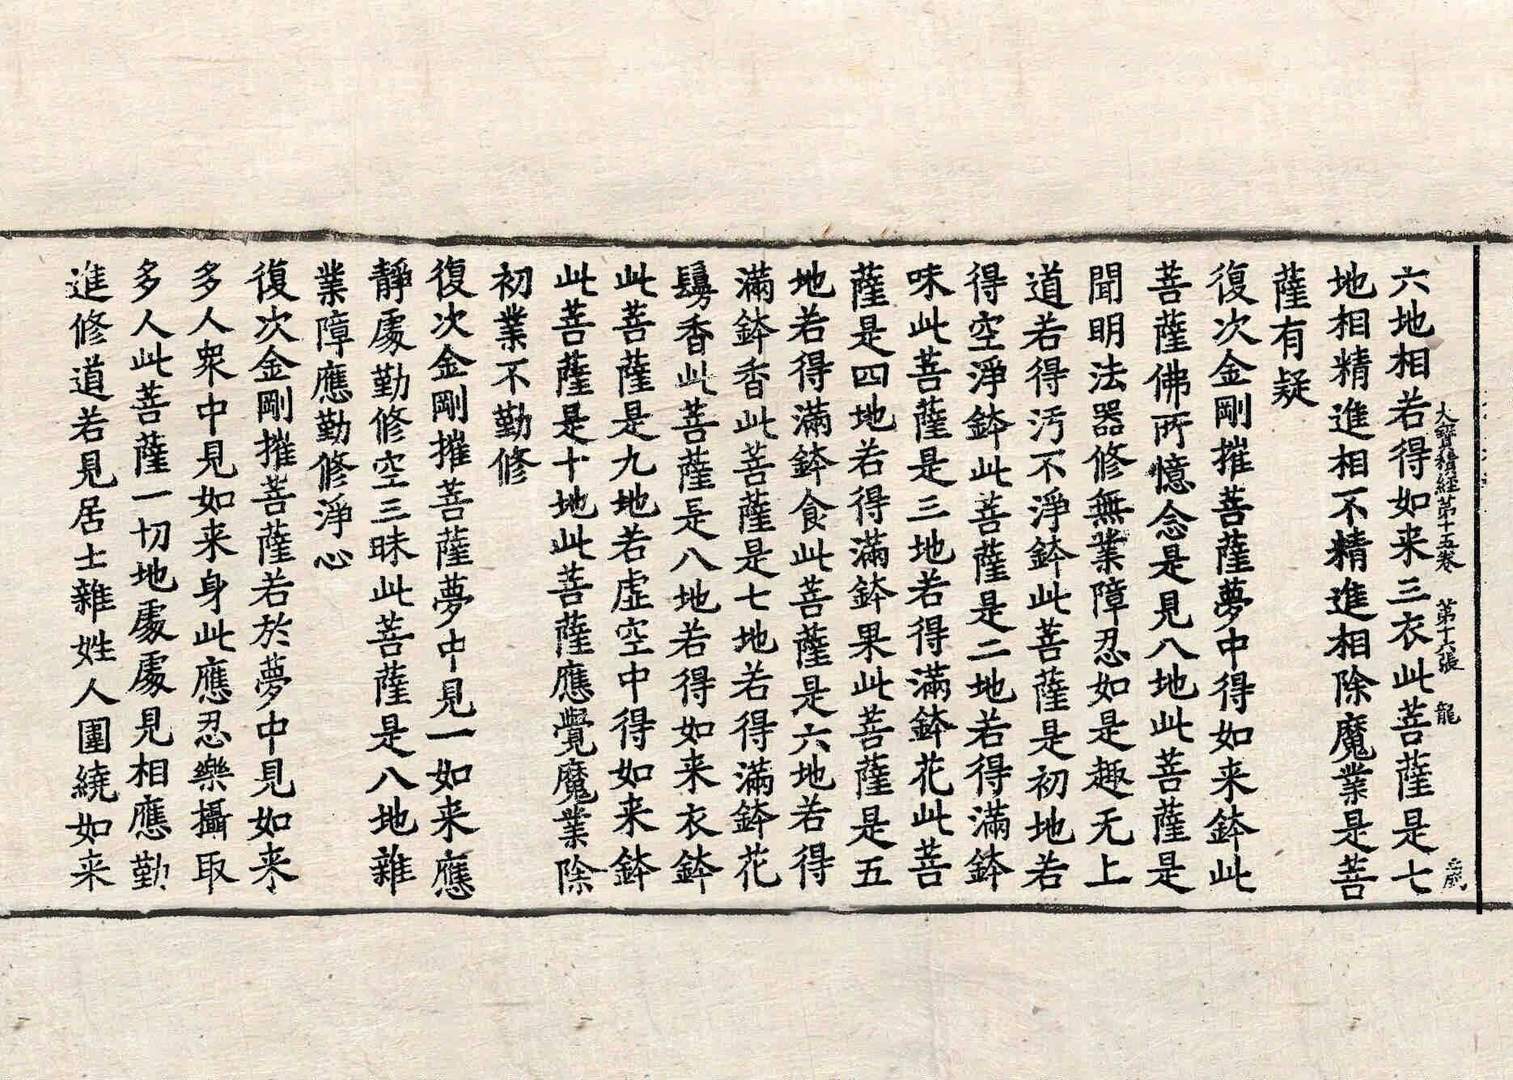 大寶積經第十五卷 第十六張 龍
六地相若得如来三衣此菩薩是七
地相精進相不精進相除魔業是菩
薩有疑
復次金剛摧菩薩夢中得如来鉢此
菩薩佛所憶念是見八地此菩薩是
聞明法器修無業障忍如是趣无上
道若得污不淨鉢此菩薩是初地若
得空淨鉢此菩薩是二地若得滿鉢
味此菩薩是三地若得滿鉢花此菩
薩是四地若得滿鉢果此菩薩是五
地若得滿鉢食此菩薩是六地若得
滿鉢香此菩薩是七地若得滿鉢花
鬘香此菩薩是八地若得如来衣鉢
此菩薩是九地若虛空中得如来鉢
此菩薩是十地此菩薩應覺魔業除
初業不勤修
復次金剛摧菩薩夢中見一如来應
靜處勤修空三昧此菩薩是八地雜
業障應勤修淨心
復次金剛摧菩薩若於夢中見如来
多人衆中見如来身此應忍樂攝取
多人此菩薩一切地處處見相應勤
進修道若見居士雜姓人圍繞如来